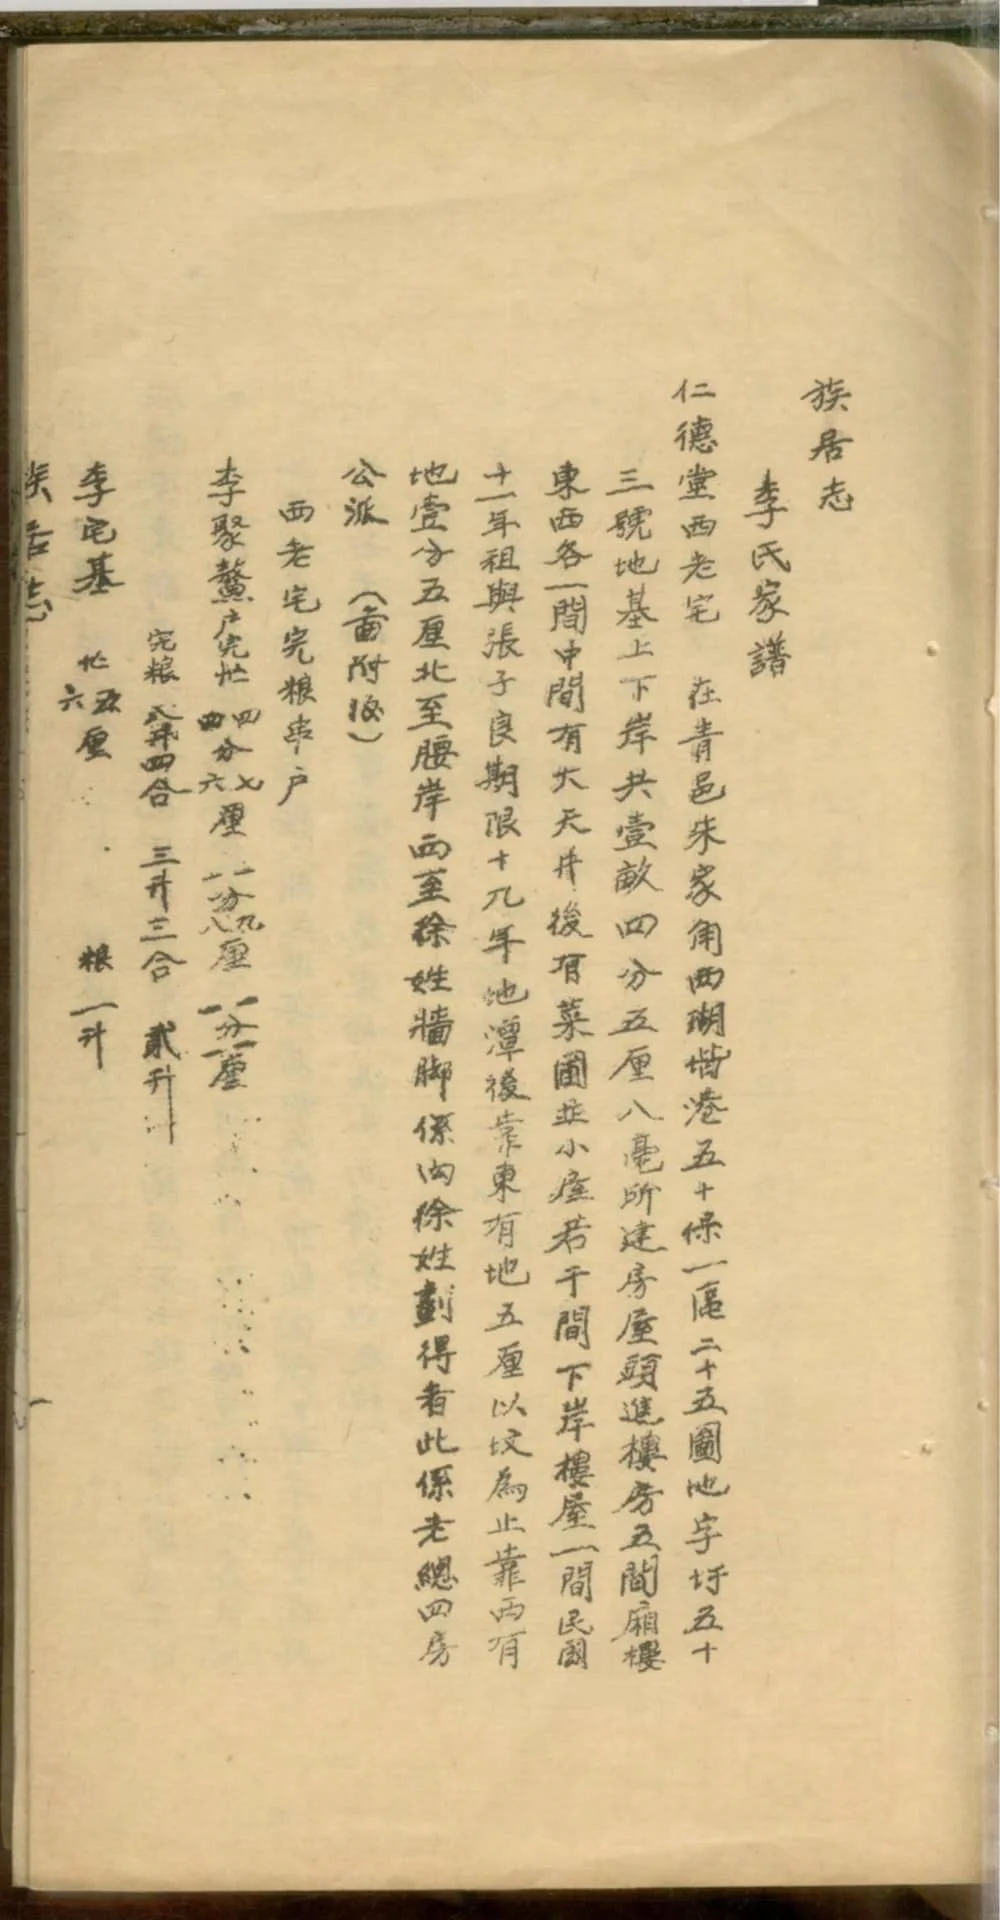 族居志
李氏家譜
仁德堂西老宅 在青邑朱家角西湖堦港五十保一區二十五圖地字圩五十
三號地基上下岸共壹畝四分五厘八毫所建房屋頭進樓房五間廂樓
東西各一間中間有大天井後有菜圃並小屋若干間下岸樓屋一間民國
十一年租與張子良期限十九年地潭後靠東有地五厘以坟為止靠西有
地壹分五厘北至腰岸西至徐姓牆脚係向徐姓劃得者此係老總四房
公派（畣附後）
西老宅完粮串户
李聚鰲户完忙 四分七厘 四六 一分九厘 一八 一分一厘
完粮 弍升四合 三升三合 貳升
李宅基 忙五厘 六 粮一升
族居志